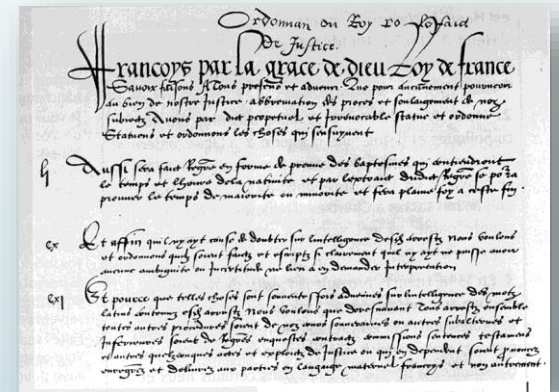 Ordonnan du Roy
De Justice.
Francoys par la grace de dieu Roy de france
Savoir faisons A tous presens et advenir Que pour aucunement pourveoir
au bien de nostre Justice abbreviation des proces et soulagement de noz
subiectz Avons par edit perpetuel et irrevocable statue et ordonne
Statuons et ordonnons les choses qui sensuyvent
Aussi sera faict Regre en forme de preuve des baptesmes qui contiendront
le temps et lheure dela nativite et par lextraict dudict Regre se po ra
prouver le temps de maiorite ou minorite et sera plaine foy a ceste fin.
cx Et affin quil ny ayt cause de doubter sur lintelligence desd arrestz Nous voulons
et ordonnons quilz soient faictz et escriptz si clairement quil ny ayt ne puisse avoir
aucune ambiguite ou incertitude ne lieu a en demander Interpretation
cxj Et pource que telles choses sont souventes fois advenues sur lintelligence des motz
latins contenuz esd arrestz Nous voulons que doresnavant Tous arrestz ensemble
toutes autres procedures soient de noz cours souveraines ou autres subalternes et
Inferieures soient de Regres enquestes contractz commissions sentences testamens
et autres quelzconques actes et exploictz de Justice ou qui en dependent soient prononcez
enregrez et delivrez aux parties en langage maternel francoys et non autrement